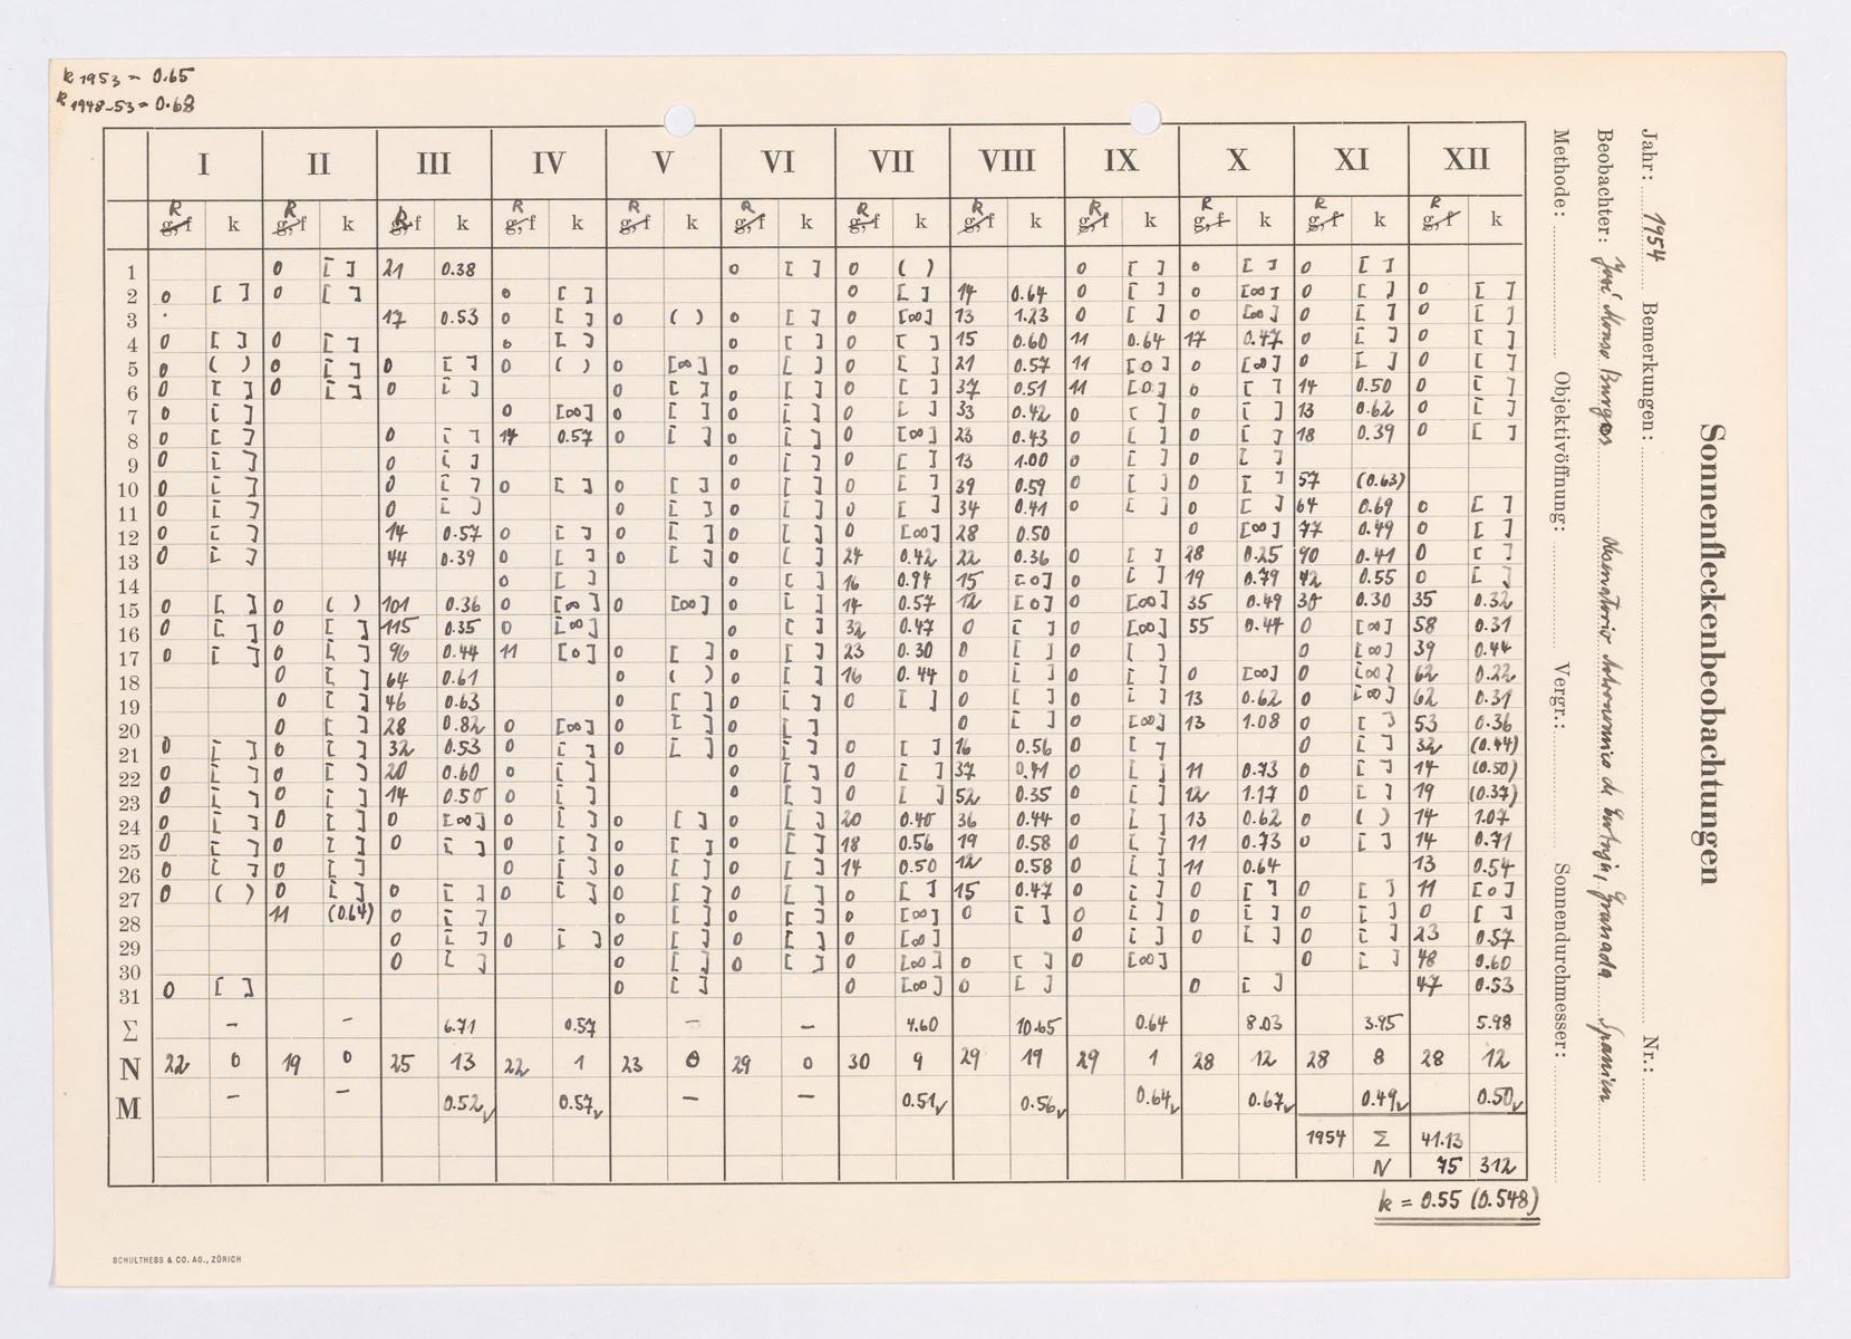 k 1953 = 0.65
k 1948-53 = 0.68
Sonnenfleckenbeobachtungen
Jahr: 1954 Bemerkungen: Nr.:
Beobachter: José Burgos Observatorio Astronomico de Cartuja, Granada Spanien
Methode: Objektivöffnung: Vergr.: Sonnendurchmesser:
I II III IV V VI VII VIII IX X XI XII
R R R R R R R R R R R R
g,f k g,f k g,f k g,f k g,f k g,f k g,f k g,f k g,f k g,f k g,f k g,f k
1 0 [ ] 21 0.38 0 [ ] 0 ( ) 0 [ ] 0 [ ] 0 [ ]
2 0 [ ] 0 [ ] 0 [ ] 0 [ ] 14 0.64 0 [ ] 0 [∞] 0 [ ] 0 [ ]
3 17 0.53 0 [ ] 0 ( ) 0 [ ] 0 [∞] 13 1.23 0 [ ] 0 [∞] 0 [ ] 0 [ ]
4 0 [ ] 0 [ ] 0 [ ] 0 [ ] 0 [ ] 15 0.60 11 0.64 17 0.47 0 [ ] 0 [ ]
5 0 ( ) 0 [ ] 0 [ ] 0 ( ) 0 [∞] 0 [ ] 0 [ ] 21 0.57 11 [0] 0 [∞] 0 [ ] 0 [ ]
6 0 [ ] 0 [ ] 0 [ ] 0 [ ] 0 [ ] 0 [ ] 37 0.51 11 [0] 0 [ ] 14 0.50 0 [ ]
7 0 [ ] 0 [∞] 0 [ ] 0 [ ] 0 [ ] 33 0.42 0 [ ] 0 [ ] 13 0.62 0 [ ]
8 0 [ ] 0 [ ] 14 0.57 0 [ ] 0 [ ] 0 [∞] 23 0.43 0 [ ] 0 [ ] 18 0.39 0 [ ]
9 0 [ ] 0 [ ] 0 [ ] 0 [ ] 13 1.00 0 [ ] 0 [ ]
10 0 [ ] 0 [ ] 0 [ ] 0 [ ] 0 [ ] 0 [ ] 39 0.59 0 [ ] 0 [ ] 57 (0.63)
11 0 [ ] 0 [ ] 0 [ ] 0 [ ] 0 [ ] 34 0.41 0 [ ] 0 [ ] 64 0.69 0 [ ]
12 0 [ ] 14 0.57 0 [ ] 0 [ ] 0 [ ] 0 [∞] 28 0.50 0 [∞] 77 0.49 0 [ ]
13 0 [ ] 44 0.39 0 [ ] 0 [ ] 0 [ ] 24 0.42 22 0.36 0 [ ] 28 0.25 90 0.41 0 [ ]
14 0 [ ] 0 [ ] 16 0.94 15 [0] 0 [ ] 19 0.79 42 0.55 0 [ ]
15 0 [ ] 0 ( ) 101 0.36 0 [∞] 0 [∞] 0 [ ] 14 0.57 12 [0] 0 [∞] 35 0.49 30 0.30 35 0.32
16 0 [ ] 0 [ ] 115 0.35 0 [∞] 0 [ ] 32 0.47 0 [ ] 0 [∞] 55 0.47 0 [∞] 58 0.31
17 0 [ ] 0 [ ] 96 0.44 11 [0] 0 [ ] 0 [ ] 23 0.30 0 [ ] 0 [ ] 0 [∞] 39 0.44
18 0 [ ] 64 0.61 0 ( ) 0 [ ] 16 0.44 0 [ ] 0 [ ] 0 [∞] 0 [∞] 62 0.22
19 0 [ ] 46 0.63 0 [ ] 0 [ ] 0 [ ] 0 [ ] 0 [ ] 13 0.62 0 [∞] 62 0.31
20 0 [ ] 28 0.82 0 [∞] 0 [ ] 0 [ ] 0 [ ] 0 [∞] 13 1.08 0 [ ] 53 0.36
21 0 [ ] 0 [ ] 32 0.53 0 [ ] 0 [ ] 0 [ ] 0 [ ] 16 0.56 0 [ ] 0 [ ] 32 (0.44)
22 0 [ ] 0 [ ] 20 0.60 0 [ ] 0 [ ] 0 [ ] 37 0.41 0 [ ] 11 0.73 0 [ ] 14 (0.50)
23 0 [ ] 0 [ ] 14 0.50 0 [ ] 0 [ ] 0 [ ] 52 0.35 0 [ ] 12 1.17 0 [ ] 19 (0.37)
24 0 [ ] 0 [ ] 0 [∞] 0 [ ] 0 [ ] 0 [ ] 20 0.40 36 0.44 0 [ ] 13 0.62 0 ( ) 14 1.07
25 0 [ ] 0 [ ] 0 [ ] 0 [ ] 0 [ ] 0 [ ] 18 0.56 19 0.58 0 [ ] 11 0.73 0 [ ] 14 0.71
26 0 [ ] 0 [ ] 0 [ ] 0 [ ] 0 [ ] 14 0.50 12 0.58 0 [ ] 11 0.64 13 0.54
27 0 ( ) 0 [ ] 0 [ ] 0 [ ] 0 [ ] 0 [ ] 0 [ ] 15 0.47 0 [ ] 0 [ ] 0 [ ] 11 [0]
28 11 (0.64) 0 [ ] 0 [ ] 0 [ ] 0 [∞] 0 [ ] 0 [ ] 0 [ ] 0 [ ] 0 [ ]
29 0 [ ] 0 [ ] 0 [ ] 0 [ ] 0 [∞] 0 [ ] 0 [ ] 0 [ ] 23 0.57
30 0 [ ] 0 [ ] 0 [ ] 0 [∞] 0 [ ] 0 [∞] 0 [ ] 48 0.60
31 0 [ ] 0 [ ] 0 [∞] 0 [ ] 0 [ ] 47 0.53
Σ – – 6.71 0.57 – – 4.60 10.65 0.64 8.03 3.95 5.98
N 22 0 19 0 25 13 22 1 23 0 29 0 30 9 29 19 29 1 28 12 28 8 28 12
M – – 0.52 0.57 – – 0.51 0.56 0.64 0.67 0.49 0.50
1954 Σ 41.13
N 75 312
k = 0.55 (0.548)
SCHULTHESS & CO. AG., ZÜRICH